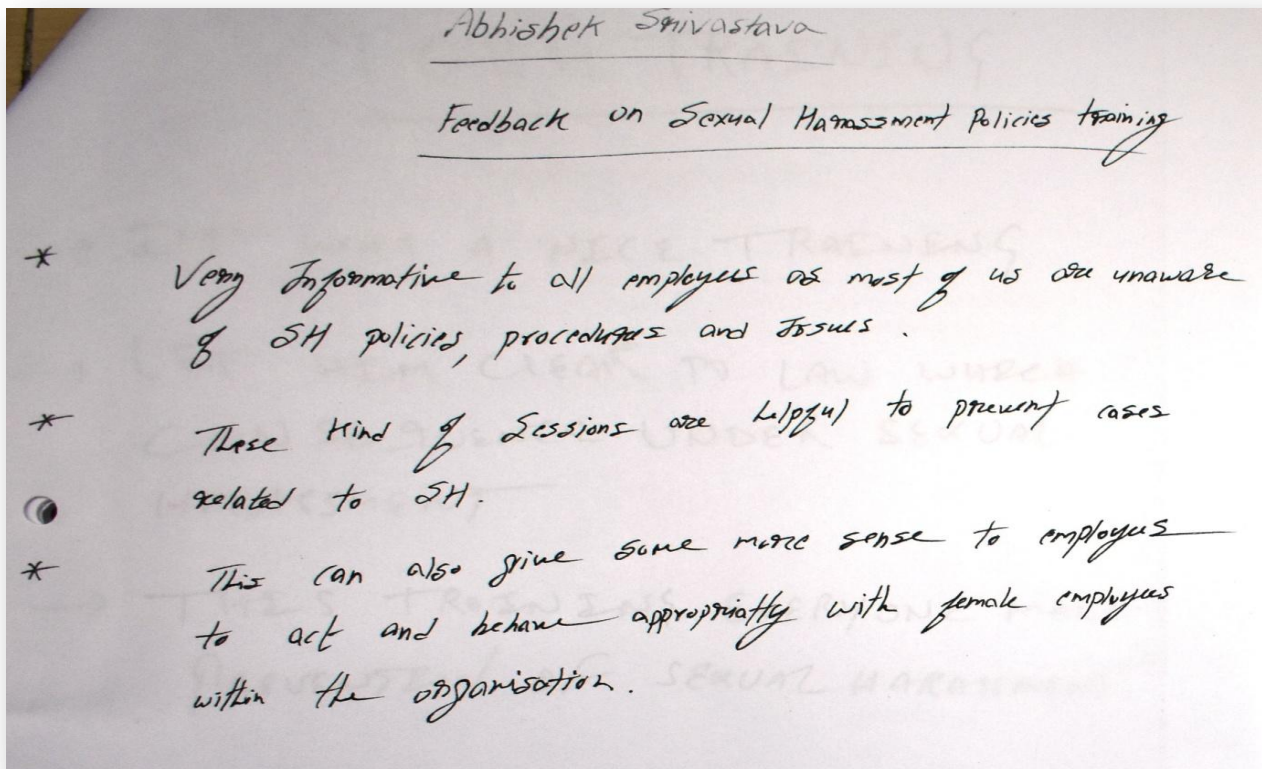 Abhishek Srivastava
Feedback on Sexual Harassment Policies training
* Very Informative to all employees as most of us are unaware
of SH policies, procedures and Issues.
* These kind of Sessions are helpful to prevent cases
related to SH.
* This can also give some more sense to employees
to act and behave appropriatly with female employees
within the organisation.